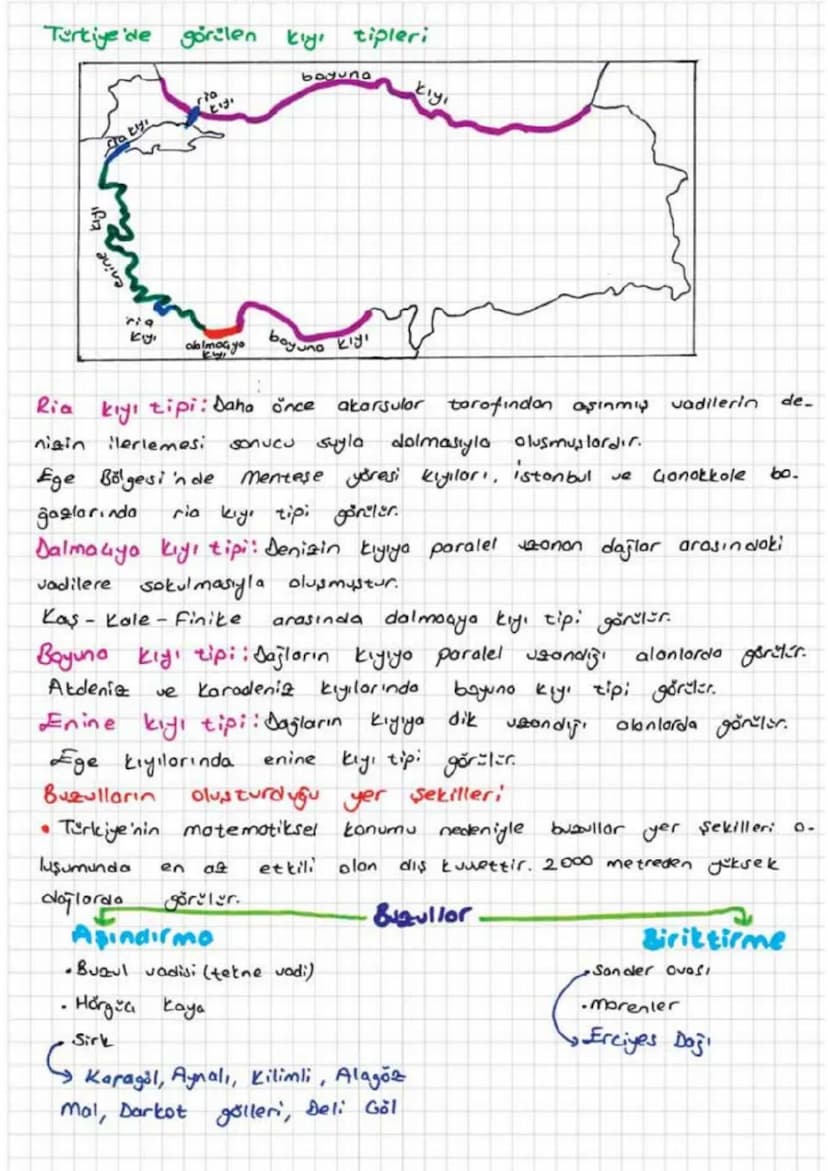 Türkiye'de görülen kıyı tipleri
boyuna kıyı
ria kıyı
ria kıyı
enine kıyı
ria kıyı
dalmaçya kıyı
boyuna kıyı
Ria kıyı tipi: Daha önce akarsular tarafından aşınmış vadilerin de-
nizin ilerlemesi sonucu suyla dolmasıyla oluşmuşlardır.
Ege Bölgesi'nde Menteşe yöresi kıyıları, İstanbul ve Çanakkale bo-
ğazlarında ria kıyı tipi görülür.
Dalmaçya kıyı tipi: Denizin kıyıya paralel uzanan dağlar arasındaki
vadilere sokulmasıyla oluşmuştur.
Kaş - Kale - Finike arasında dalmaçya kıyı tipi görülür.
Boyuna kıyı tipi: Dağların kıyıya paralel uzandığı alanlarda görülür.
Akdeniz ve Karadeniz kıyılarında boyuna kıyı tipi görülür.
Enine kıyı tipi: Dağların kıyıya dik uzandığı alanlarda görülür.
Ege kıyılarında enine kıyı tipi görülür.
Buzulların oluşturduğu yer şekilleri
• Türkiye'nin matematiksel konumu nedeniyle buzullar yer şekilleri o-
luşumunda en az etkili olan dış kuvettir. 2000 metreden yüksek
dağlarda görülür.
Buzullar
Aşındırma
Biriktirme
• Buzul vadisi (tekne vadi)
• Hörgüç kaya
• Sirk
Karagöl, Aynalı, Kilimli, Alagöz
Mal, Darkot gölleri, Deli Göl
• Sander ovası
• Morenler
Erciyes Dağı